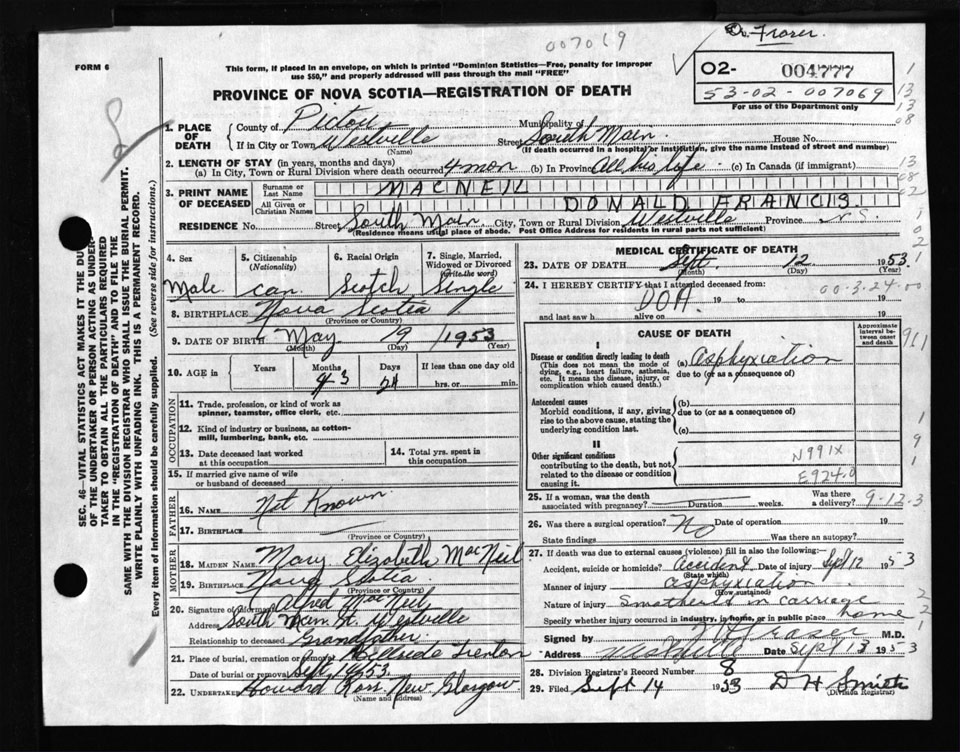 Dr. Frazer
007069
FORM 6
This form, if placed in an envelope, on which is printed "Dominion Statistics—Free, penalty for improper
use $50," and properly addressed will pass through the mail "FREE"
O2- 004777
53-02-007069
For use of the Department only
PROVINCE OF NOVA SCOTIA—REGISTRATION OF DEATH
1. PLACE OF DEATH
County of Pictou Municipality of
If in City or Town Westville Street South Main House No.
(Name) (If death occurred in a hospital or institution, give the name instead of street and number)
2. LENGTH OF STAY (in years, months and days)
(a) In City, Town or Rural Division where death occurred 4 mon (b) In Province All his life (c) In Canada (if immigrant)
3. PRINT NAME OF DECEASED
Surname or Last Name MACNEIL
All Given or Christian Names DONALD FRANCIS
RESIDENCE No. Street South Main City, Town or Rural Division Westville Province N.S.
(Residence means usual place of abode. Post Office Address for residents in rural parts not sufficient)
4. Sex Male
5. Citizenship (Nationality) Can.
6. Racial Origin Scotch
7. Single, Married, Widowed or Divorced (Write the word) Single
8. BIRTHPLACE Nova Scotia
(Province or Country)
9. DATE OF BIRTH May 19 1953
(Month) (Day) (Year)
10. AGE in Years Months 3 Days 24 If less than one day
hrs. or min.
OCCUPATION
11. Trade, profession, or kind of work as
spinner, teamster, office clerk, etc.
12. Kind of industry or business, as cotton-
mill, lumbering, bank, etc.
13. Date deceased last worked
at this occupation
14. Total yrs. spent in
this occupation
15. If married give name of wife
or husband of deceased
FATHER
16. NAME Not Known
17. BIRTHPLACE
(Province or Country)
MOTHER
18. MAIDEN NAME Mary Elizabeth MacNeil
19. BIRTHPLACE Nova Scotia
(Province or Country)
20. Signature of informant Alfred MacNeil
Address South Main St. Westville
Relationship to deceased Grandfather.
21. Place of burial, cremation or removal Hillside Trenton
Date of burial or removal Sept 14/53.
22. UNDERTAKER Howard Ross New Glasgow
(Name and address)
MEDICAL CERTIFICATE OF DEATH
23. DATE OF DEATH Sept. 12 1953
(Month) (Day) (Year)
24. I HEREBY CERTIFY that I attended deceased from
DOA. 19 to 19
and last saw h alive on 19
00-3-24-00
CAUSE OF DEATH
Approximate interval between onset and death
I
Disease or condition directly leading to death
(This does not mean the mode of
dying, e.g., heart failure, asthenia,
etc. It means the disease, injury, or
complication which caused death.)
(a) Asphyxiation
due to (or as a consequence of)
Antecedent causes
Morbid conditions, if any, giving
rise to the above cause, stating the
underlying condition last.
(b)
due to (or as a consequence of)
(c)
II
Other significant conditions
contributing to the death, but not
related to the disease or condition
causing it.
N991X
E924.0
25. If a woman, was the death
associated with pregnancy? Duration weeks. Was there a delivery?
9-12-3
26. Was there a surgical operation? No Date of operation 19
State findings Was there an autopsy?
27. If death was due to external causes (violence) fill in also the following:—
Accident, suicide or homicide? Accident Date of injury Sept 12 1953
(State which)
Manner of injury asphyxiation
(How sustained)
Nature of injury Smothered in carriage
Specify whether injury occurred in industry, in home, or in public place home
Signed by Frazer M.D.
Address Westville Date Sept 13 1953
28. Division Registrar's Record Number 8
29. Filed Sept 14 1953 D H Smith
(Division Registrar)
SEC. 46—VITAL STATISTICS ACT MAKES IT THE DUTY
OF THE UNDERTAKER OR PERSON ACTING AS UNDER-
TAKER TO OBTAIN ALL THE PARTICULARS REQUIRED
IN THE "REGISTRATION OF DEATH" AND TO FILE THE
SAME WITH THE DIVISION REGISTRAR WHO SHALL ISSUE THE BURIAL PERMIT.
WRITE PLAINLY WITH UNFADING INK. THIS IS A PERMANENT RECORD.
Every item of information should be carefully supplied. (See reverse side for instructions.)